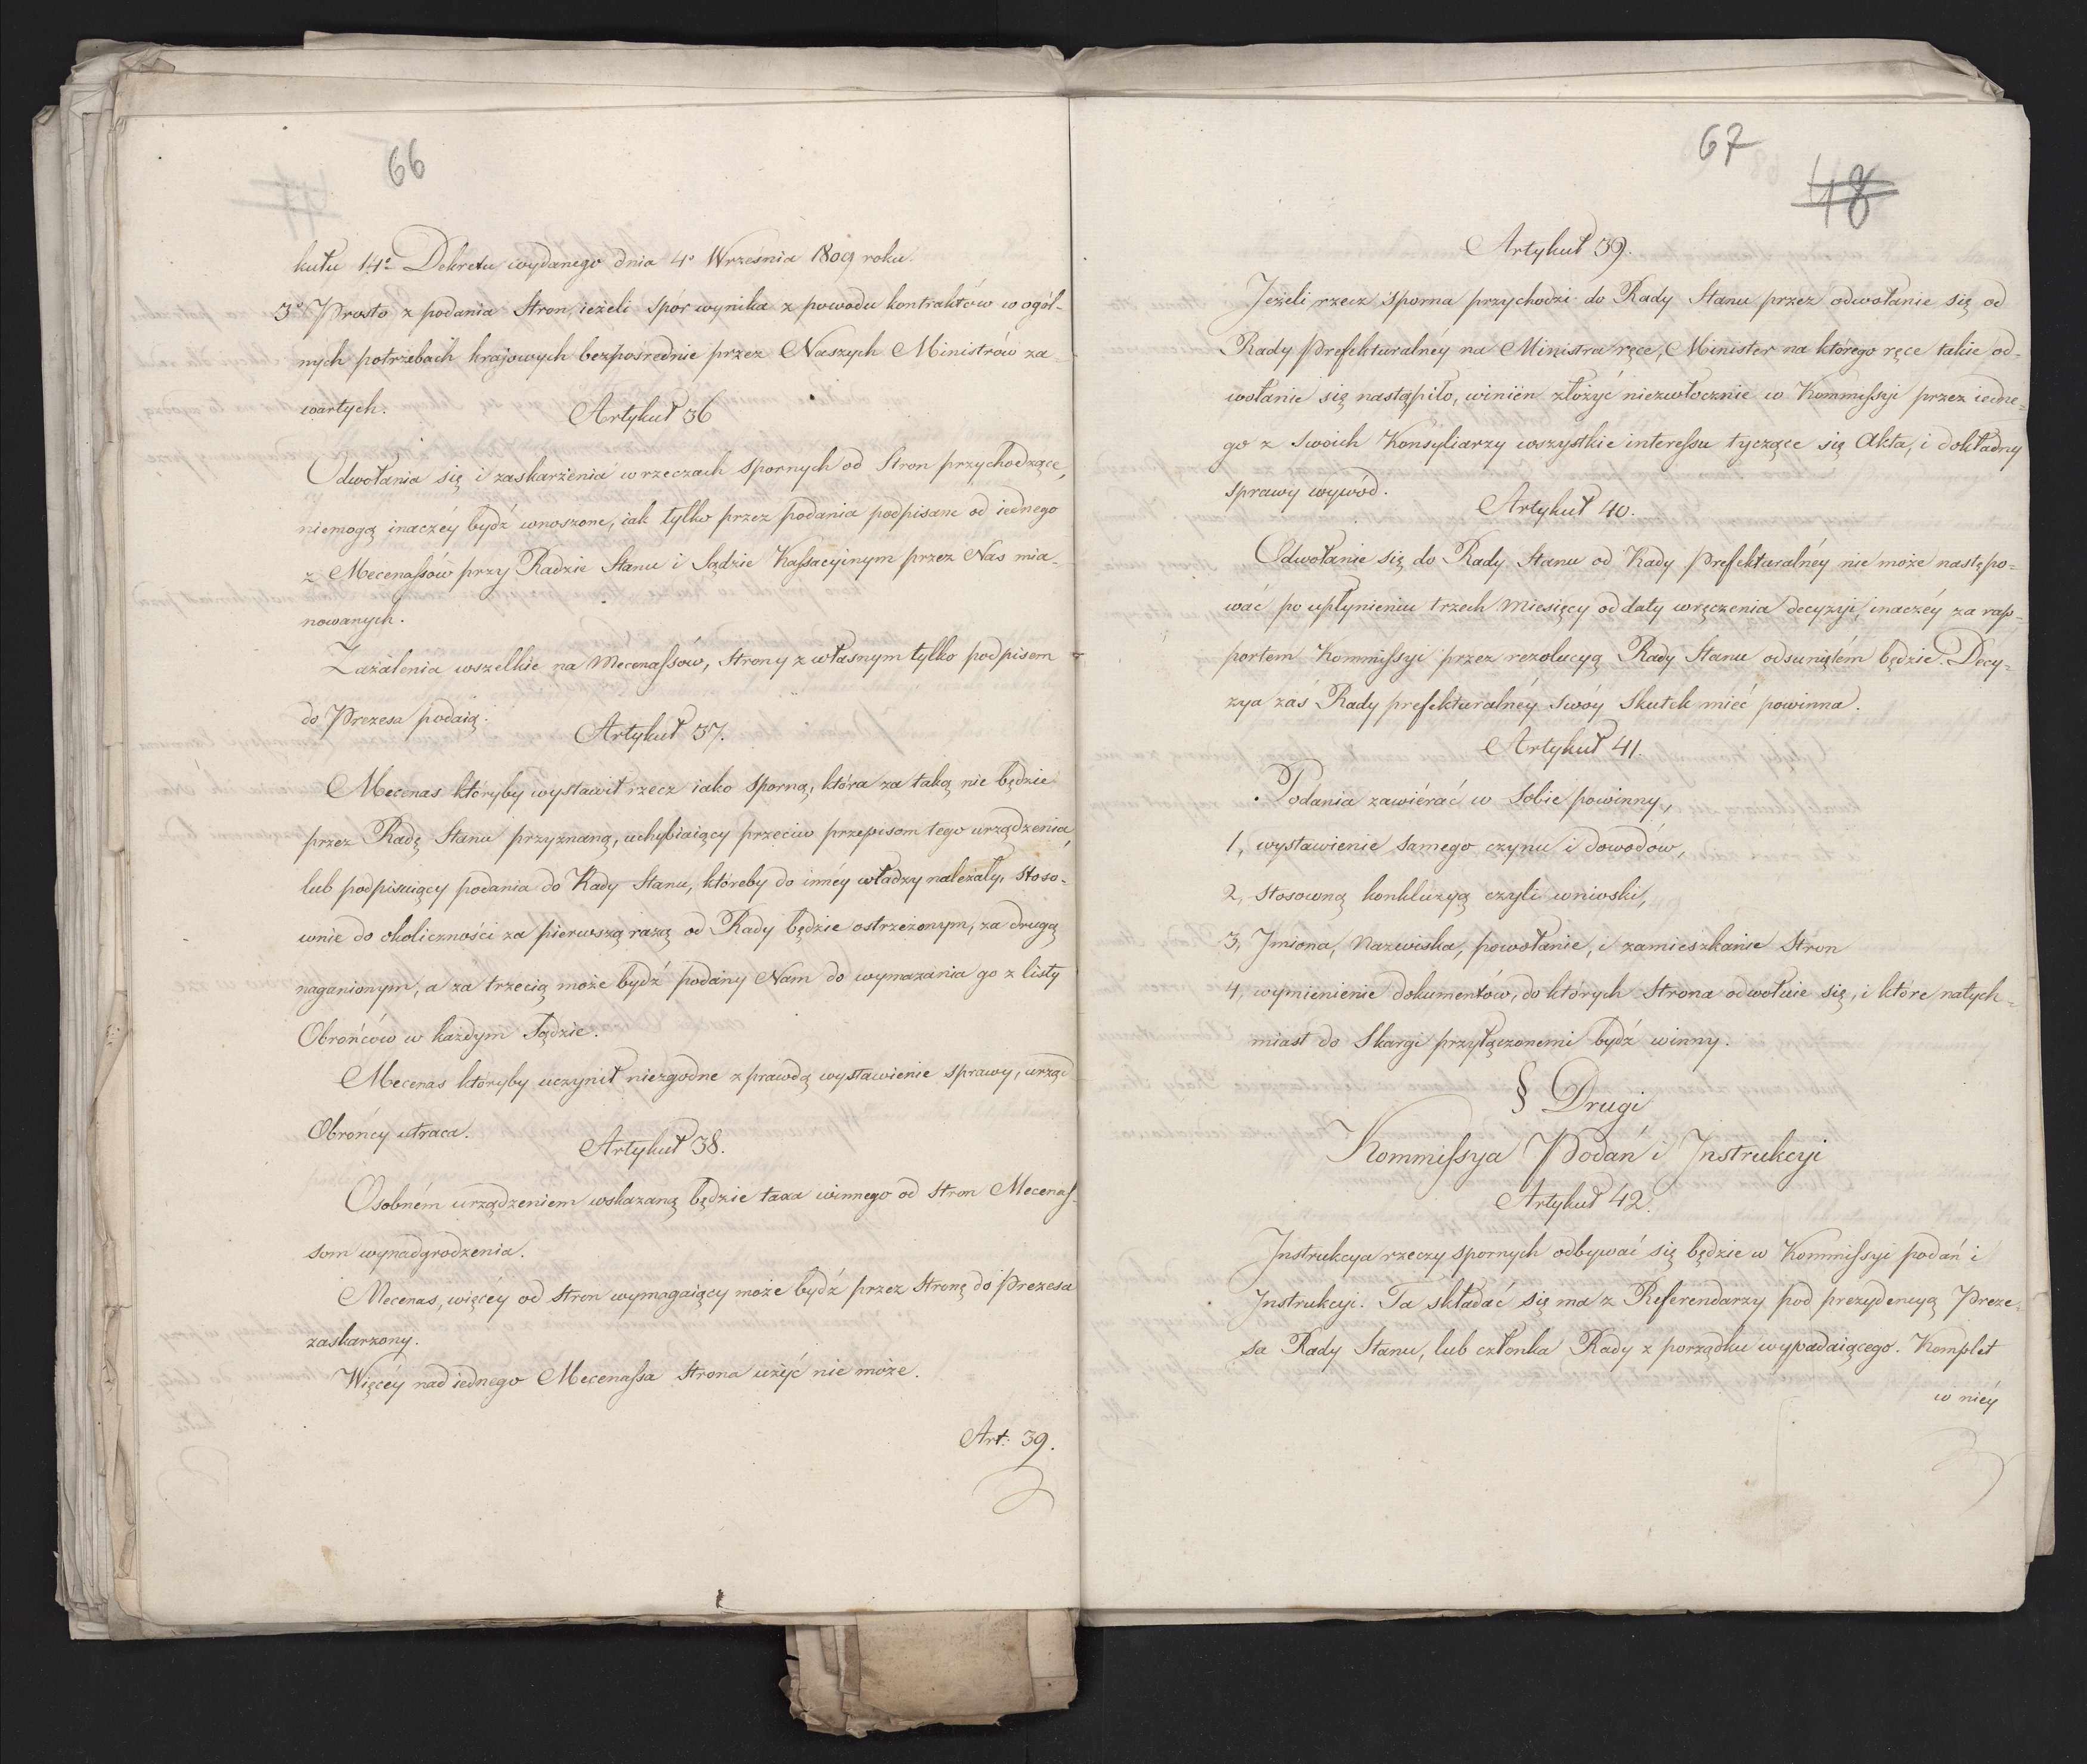 66
kułu 14º Dekretu wydanego dnia 4º Września 1809 roku.
3º Prosto z podania Stron, ieżeli spór wynika z powodu kontraktów w ogól-
nych potrzebach krajowych bezpośrednie przez Naszych Ministrów za
wartych.
Artykuł 36
Odwołania się i zaskarżenia w rzeczach spornych od Stron przychodzące,
niemogą inaczéy bydź wnoszone, iak tylko przez podania podpisane od iednego
z Mecenaſsów przy Radzie Stanu i Sądzie Kaſsacyinym przez Nas mia-
nowanych.
Zażalenia wszelkie na Mecenaſsów, Strony z własnym tylko podpisem
do Prezesa podaią.
Artykuł 37.
Mecenas któryby wystawił rzecz iako sporną, która za taką nie będzie
przez Radę Stanu przyznaną, uchybiaiący przeciw przepisom tego urządzenia,
lub podpisuiący podania do Rady Stanu, któreby do innéy władzy należały, stoso-
wnie do okoliczności za pierwszą razą od Rady będzie ostrzeżonym, za drugą
naganionym, a za trzecią może bydź podany Nam do wymazania go z listy
Obrońców w każdym Sądzie.
Mecenas któryby uczynił niezgodne z prawdą wystawienie sprawy, urząd
Obrońcy utraca.
Artykuł 38.
Osobném urządzeniem wskazaną będzie taxa winnego od Stron Mecenaſ-
som wynadgrodzenia.
Mecenas, więcéy od Stron wymagaiący może bydź przez Stronę do Prezesa
zaskarzony.
Więcéy nad iednego Mecenaſsa Strona użyć nie może.
Art: 39.
67
48
Artykuł 39.
Jeżeli rzecz sporna przychodzi do Rady Stanu przez odwołanie się od
Rady Prefekturalnéy na Ministra ręce, Minister na którego ręce takie od-
wołanie się nastąpiło, winien złożyć niezwłocznie w Kommiſsyi przez iedne-
go z Swoich Konsyliarzy wszystkie intereſsu tyczące się Akta, i dokładny
sprawy wywód.
Artykuł 40.
Odwołanie się do Rady Stanu od Rady Prefekturalnéy nie może nastepo-
wać po upłynieniu trzech Miesięcy od daty wręczenia decyzyi, inaczéy za rap-
portem Kommiſsyi przez rezolucyą Rady Stanu odsuniętém będzie. Decy-
zya zaś Rady prefekturalnéy swóy Skutek mieć powinna.
Artykuł 41.
Podania zawiérać w Sobie powinny,
1, wystawienie samego czynu i dowodów,
2, stosowną konkluzyą czyli wnioski,
3, Jmiona, Nazwiska, powołanie, i zamieszkanie Stron
4, wymienienie dokumentów, do których Strona odwołuie się, i które natych-
miast do Skargi przyłączonemi bydź winny.
§ Drugi
Kommiſsya Podań i Jnstrukcyi
Artykuł 42.
Jnstrukcya rzeczy spornych odbywać się będzie w Kommiſsyi podań i
Jnstrukcyi. Ta składać się ma z Referendarzy pod prezydencyą Preze-
sa Rady Stanu, lub członka Rady z porządku wypadaiącego. Komplet
w niéy